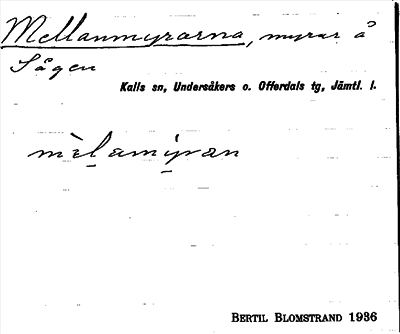 Mellanmyrarna, myrar å
Sågen
Kalls sn, Undersåkers o. Offerdals tg, Jämtl. l.
mèlamẏran
BERTIL BLOMSTRAND 1936